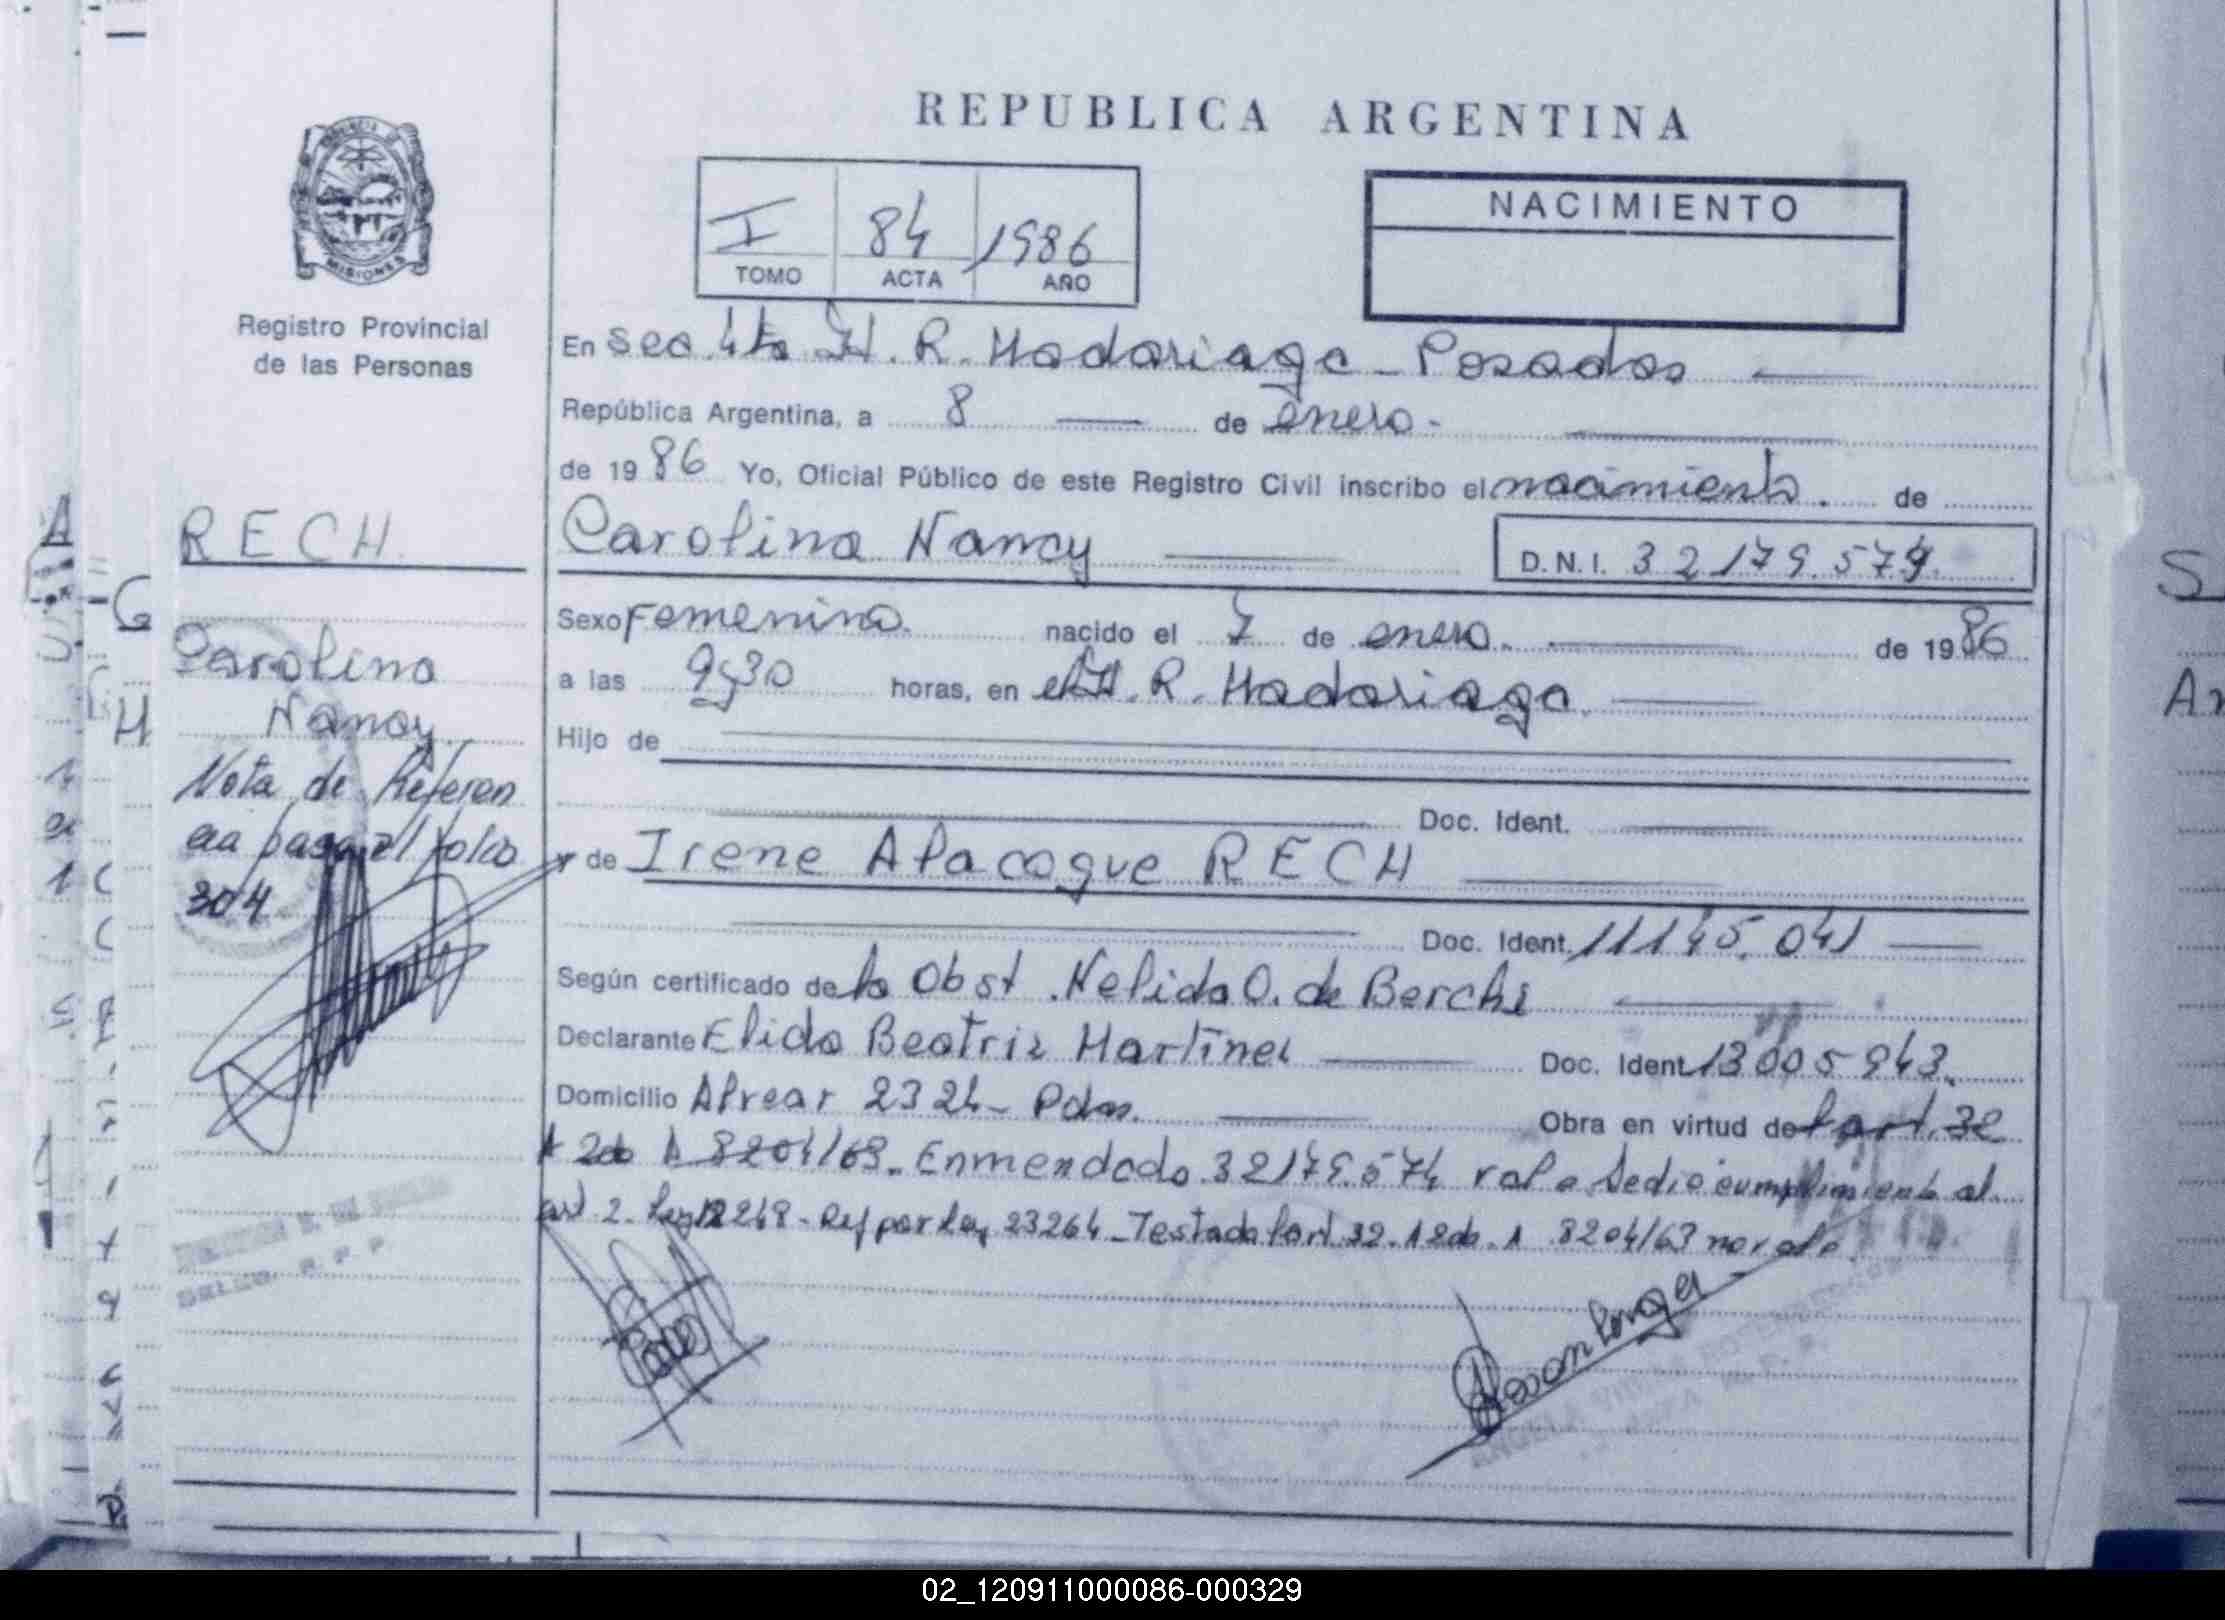 REPUBLICA ARGENTINA
MISIONES
Registro Provincial
de las Personas
I 84 1986
TOMO ACTA AÑO
NACIMIENTO
En Sec 4ta H. R. Madariaga - Posadas
República Argentina, a 8 de enero.
de 1986 Yo, Oficial Público de este Registro Civil inscribo el nacimiento. de
RECH
Carolina Nancy
D.N.I. 32179.574
Carolina
Nancy
Nota de Referen
cia pasa al folio
304
Sexo Femenino. nacido el 7 de enero. de 1986
a las 9y30 horas, en el H. R. Madariaga.
Hijo de
Doc. Ident.
y de Irene Alacoque RECH
Doc. Ident. 11145.041
Según certificado de la Obst. Nelida O. de Berchi
Declarante Elida Beatriz Martínez Doc. Ident. 13005943.
Domicilio Alvear 2324 - Pdas. Obra en virtud de l art. 32
A 2do A 8204/63. Enmendado 32179.574 vale Se dio cumplimiento al
art 2. Ley 12248 - Ref por ley 23264 - Testado l art 32. A 2do. A 8204/63 no vale.
02_120911000086-000329